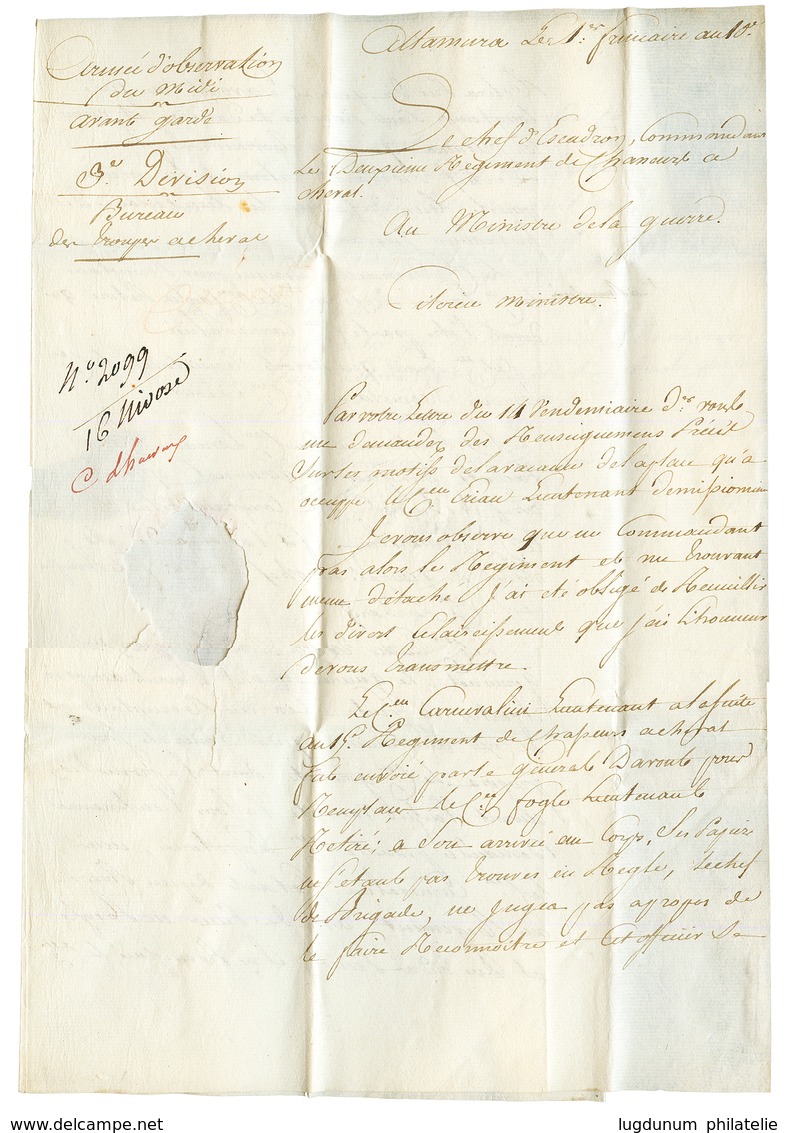 Armée d'observation
du Midi
avant garde
3e Division
Bureau
des troupes a cheval
Altamura Le 1.er frimaire an 10.e
Le chef d'Escadron, Commandant
Le Deuxieme Régiment de Chasseurs a
cheval.
Au Ministre de la guerre.
Citoien Ministre.
No. 2099
16 Nivose
Par votre Lettre du 14 Vendemiaire d.er vous
me demandez des Renseignemens Précis
Sur les motifs de la vacance de la place qu'a
occuppé le C.en Lieutenant demissionnaire
Je vous observe que ne Commandant
pas alors le Regiment et me trouvant
meme détaché J'ai eté obligé de Receuillir
les divers Eclaircissement que j'ai L'honneur
de vous transmettre.
Le C.en Carnevalini Lieutenant a la suite
au 15.e Régiment de Chasseurs a cheval
fut envoié par le général Davout pour
Remplacer le C.en fogle Lieutenant
Retiré; a Son arrivée au Corps, Ses Papiers
ne S'etant pas trouvés en Regle, Le chef
de Brigade, ne Jugea pas apropos de
le faire Reconnoitre et Cet officier Se
delcampe.net
lugdunum philatelie